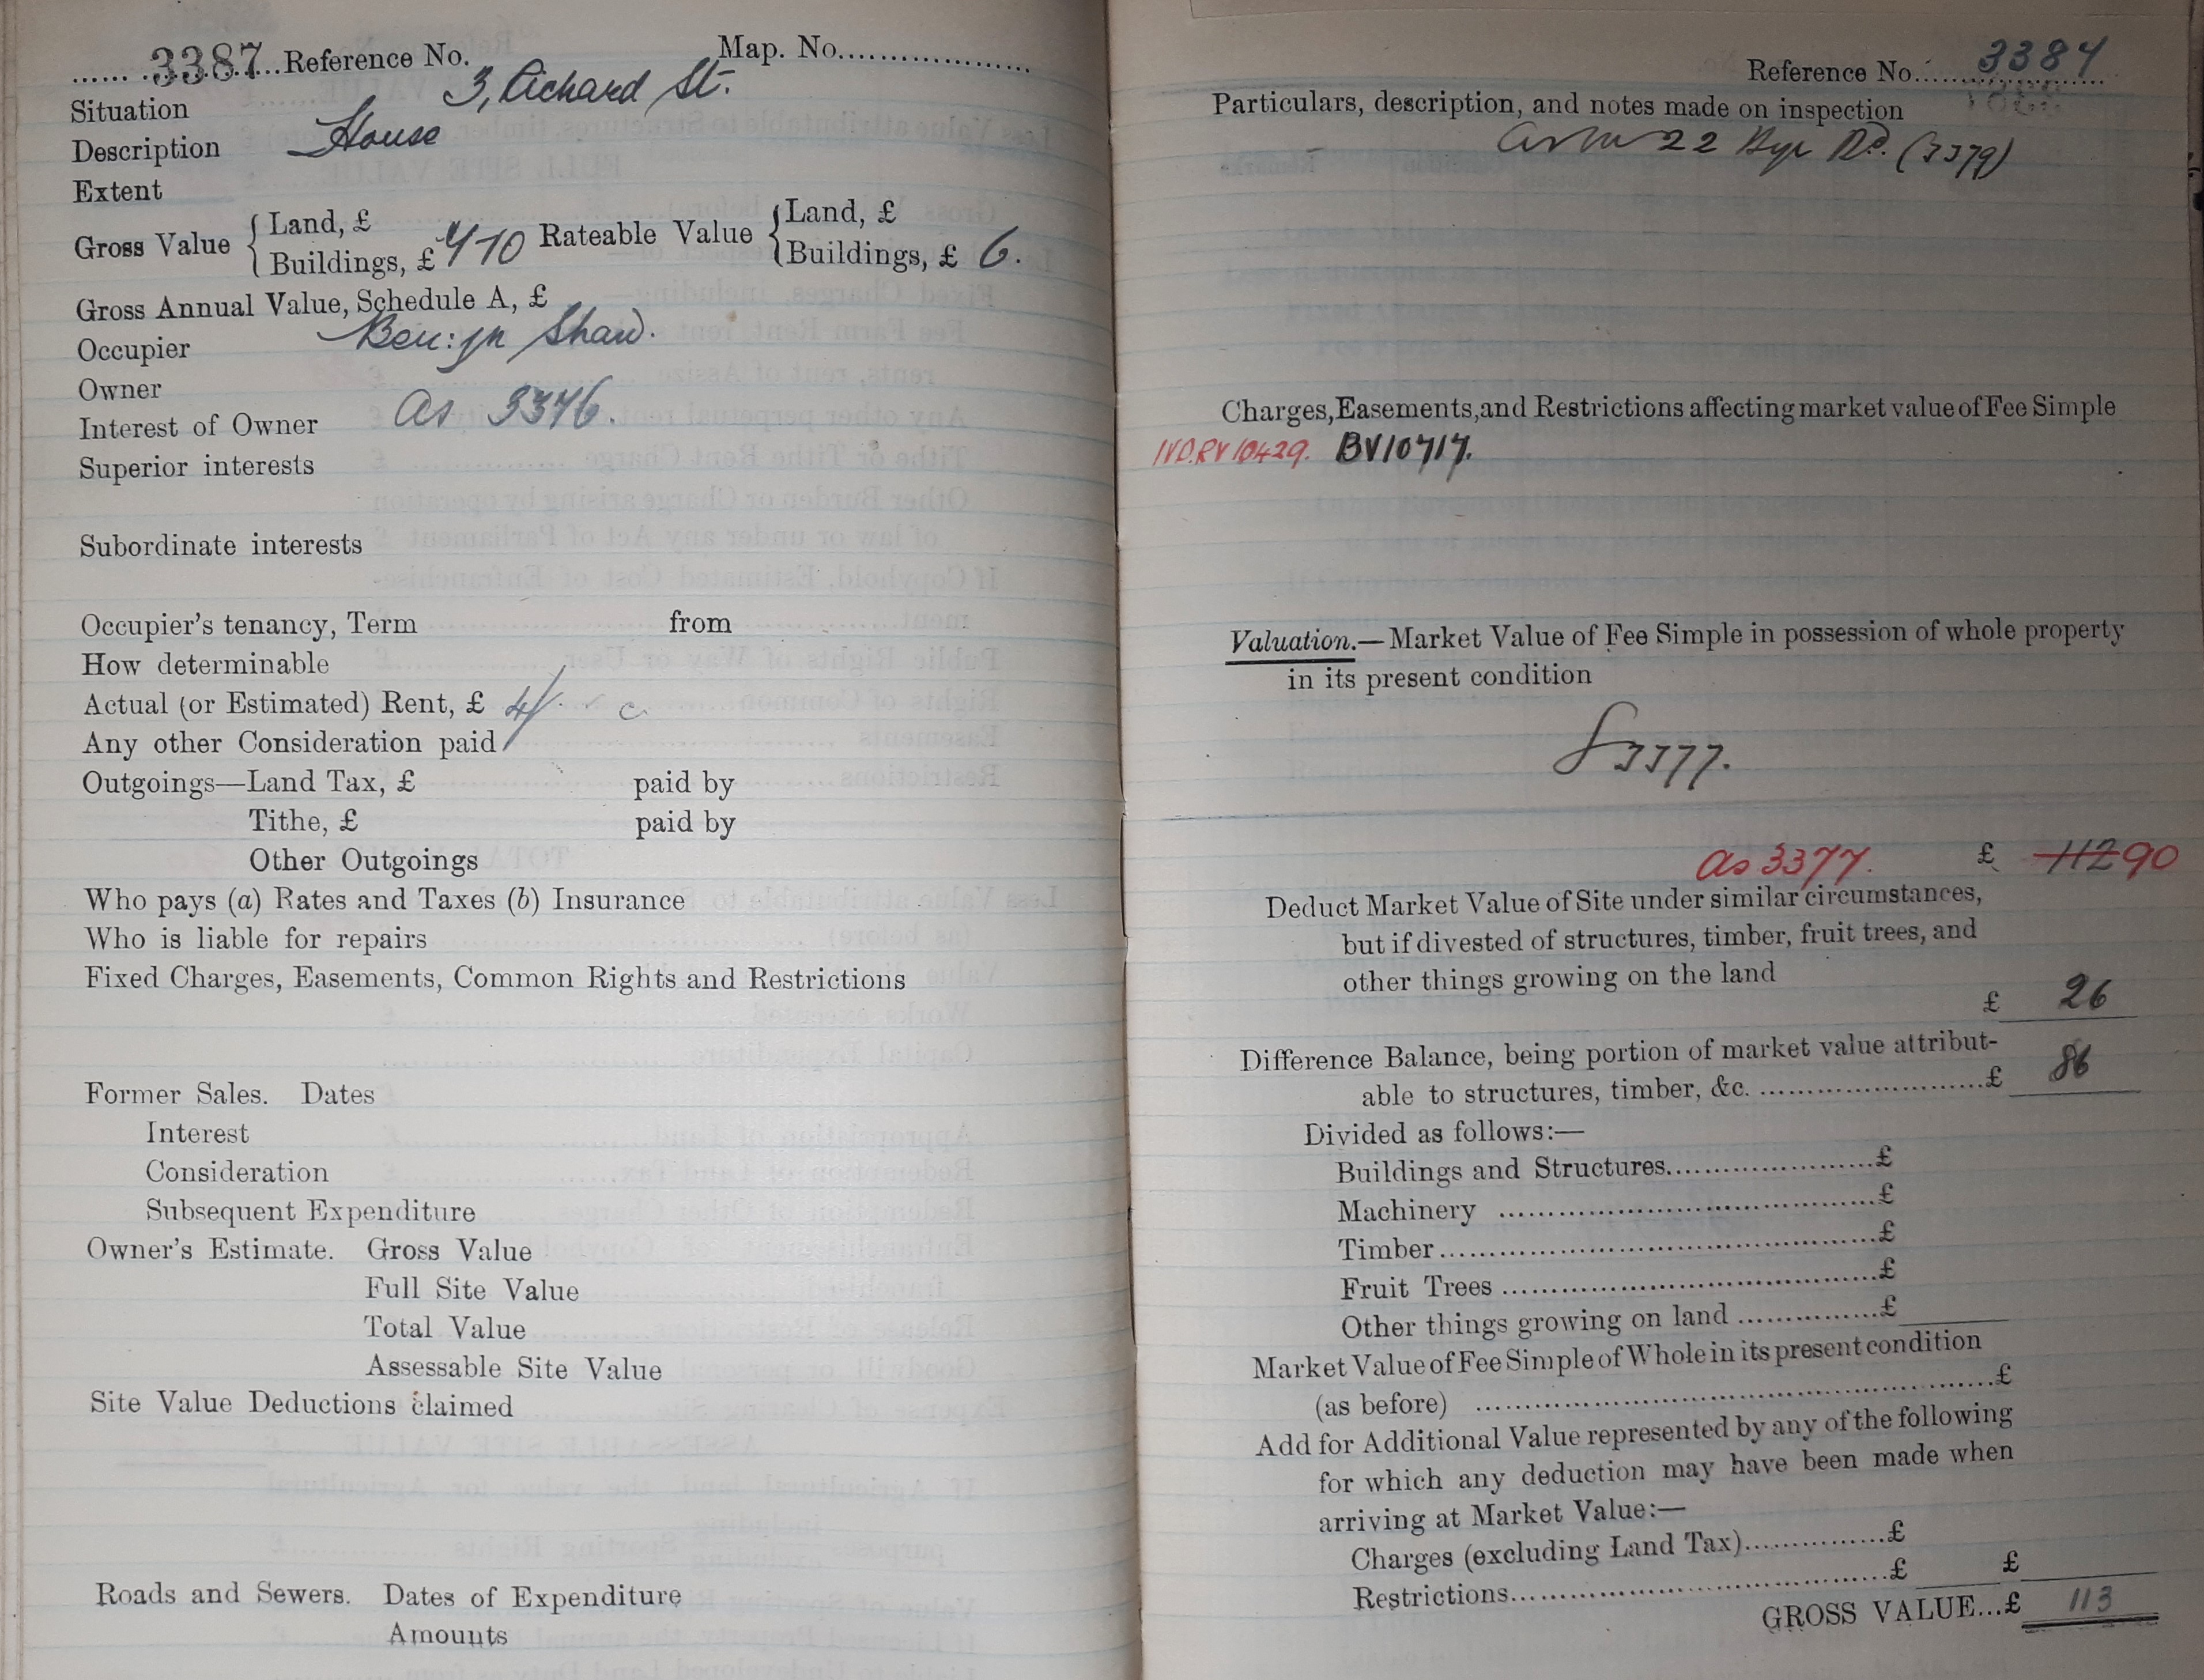 3387 Reference No. Map. No.
Situation 3, Richard St.
Description House
Extent
Gross Value { Land, £ Rateable Value { Land, £
Buildings, £ Buildings, £ 6.
Gross Annual Value, Schedule A, £
Occupier Ben:jn Shaw.
Owner
Interest of Owner As 3376.
Superior interests
Subordinate interests
Occupier's tenancy, Term from
How determinable
Actual (or Estimated) Rent, £ 4/
Any other Consideration paid
Outgoings—Land Tax, £ paid by
Tithe, £ paid by
Other Outgoings
Who pays (a) Rates and Taxes (b) Insurance
Who is liable for repairs
Fixed Charges, Easements, Common Rights and Restrictions
Former Sales. Dates
Interest
Consideration
Subsequent Expenditure
Owner's Estimate. Gross Value
Full Site Value
Total Value
Assessable Site Value
Site Value Deductions claimed
Roads and Sewers. Dates of Expenditure
Amounts
Reference No. 3387
Particulars, description, and notes made on inspection
22 Rd. (3379)
Charges, Easements, and Restrictions affecting market value of Fee Simple
10429. BV10717.
Valuation.—Market Value of Fee Simple in possession of whole property
in its present condition
3377.
as 3377. £ 112 90
Deduct Market Value of Site under similar circumstances,
but if divested of structures, timber, fruit trees, and
other things growing on the land
£ 26
Difference Balance, being portion of market value attribut-
able to structures, timber, &c. £ 86
Divided as follows:—
Buildings and Structures £
Machinery £
Timber £
Fruit Trees £
Other things growing on land £
Market Value of Fee Simple of Whole in its present condition
(as before) £
Add for Additional Value represented by any of the following
for which any deduction may have been made when
arriving at Market Value:—
Charges (excluding Land Tax) £
Restrictions £ £
GROSS VALUE...£ 113